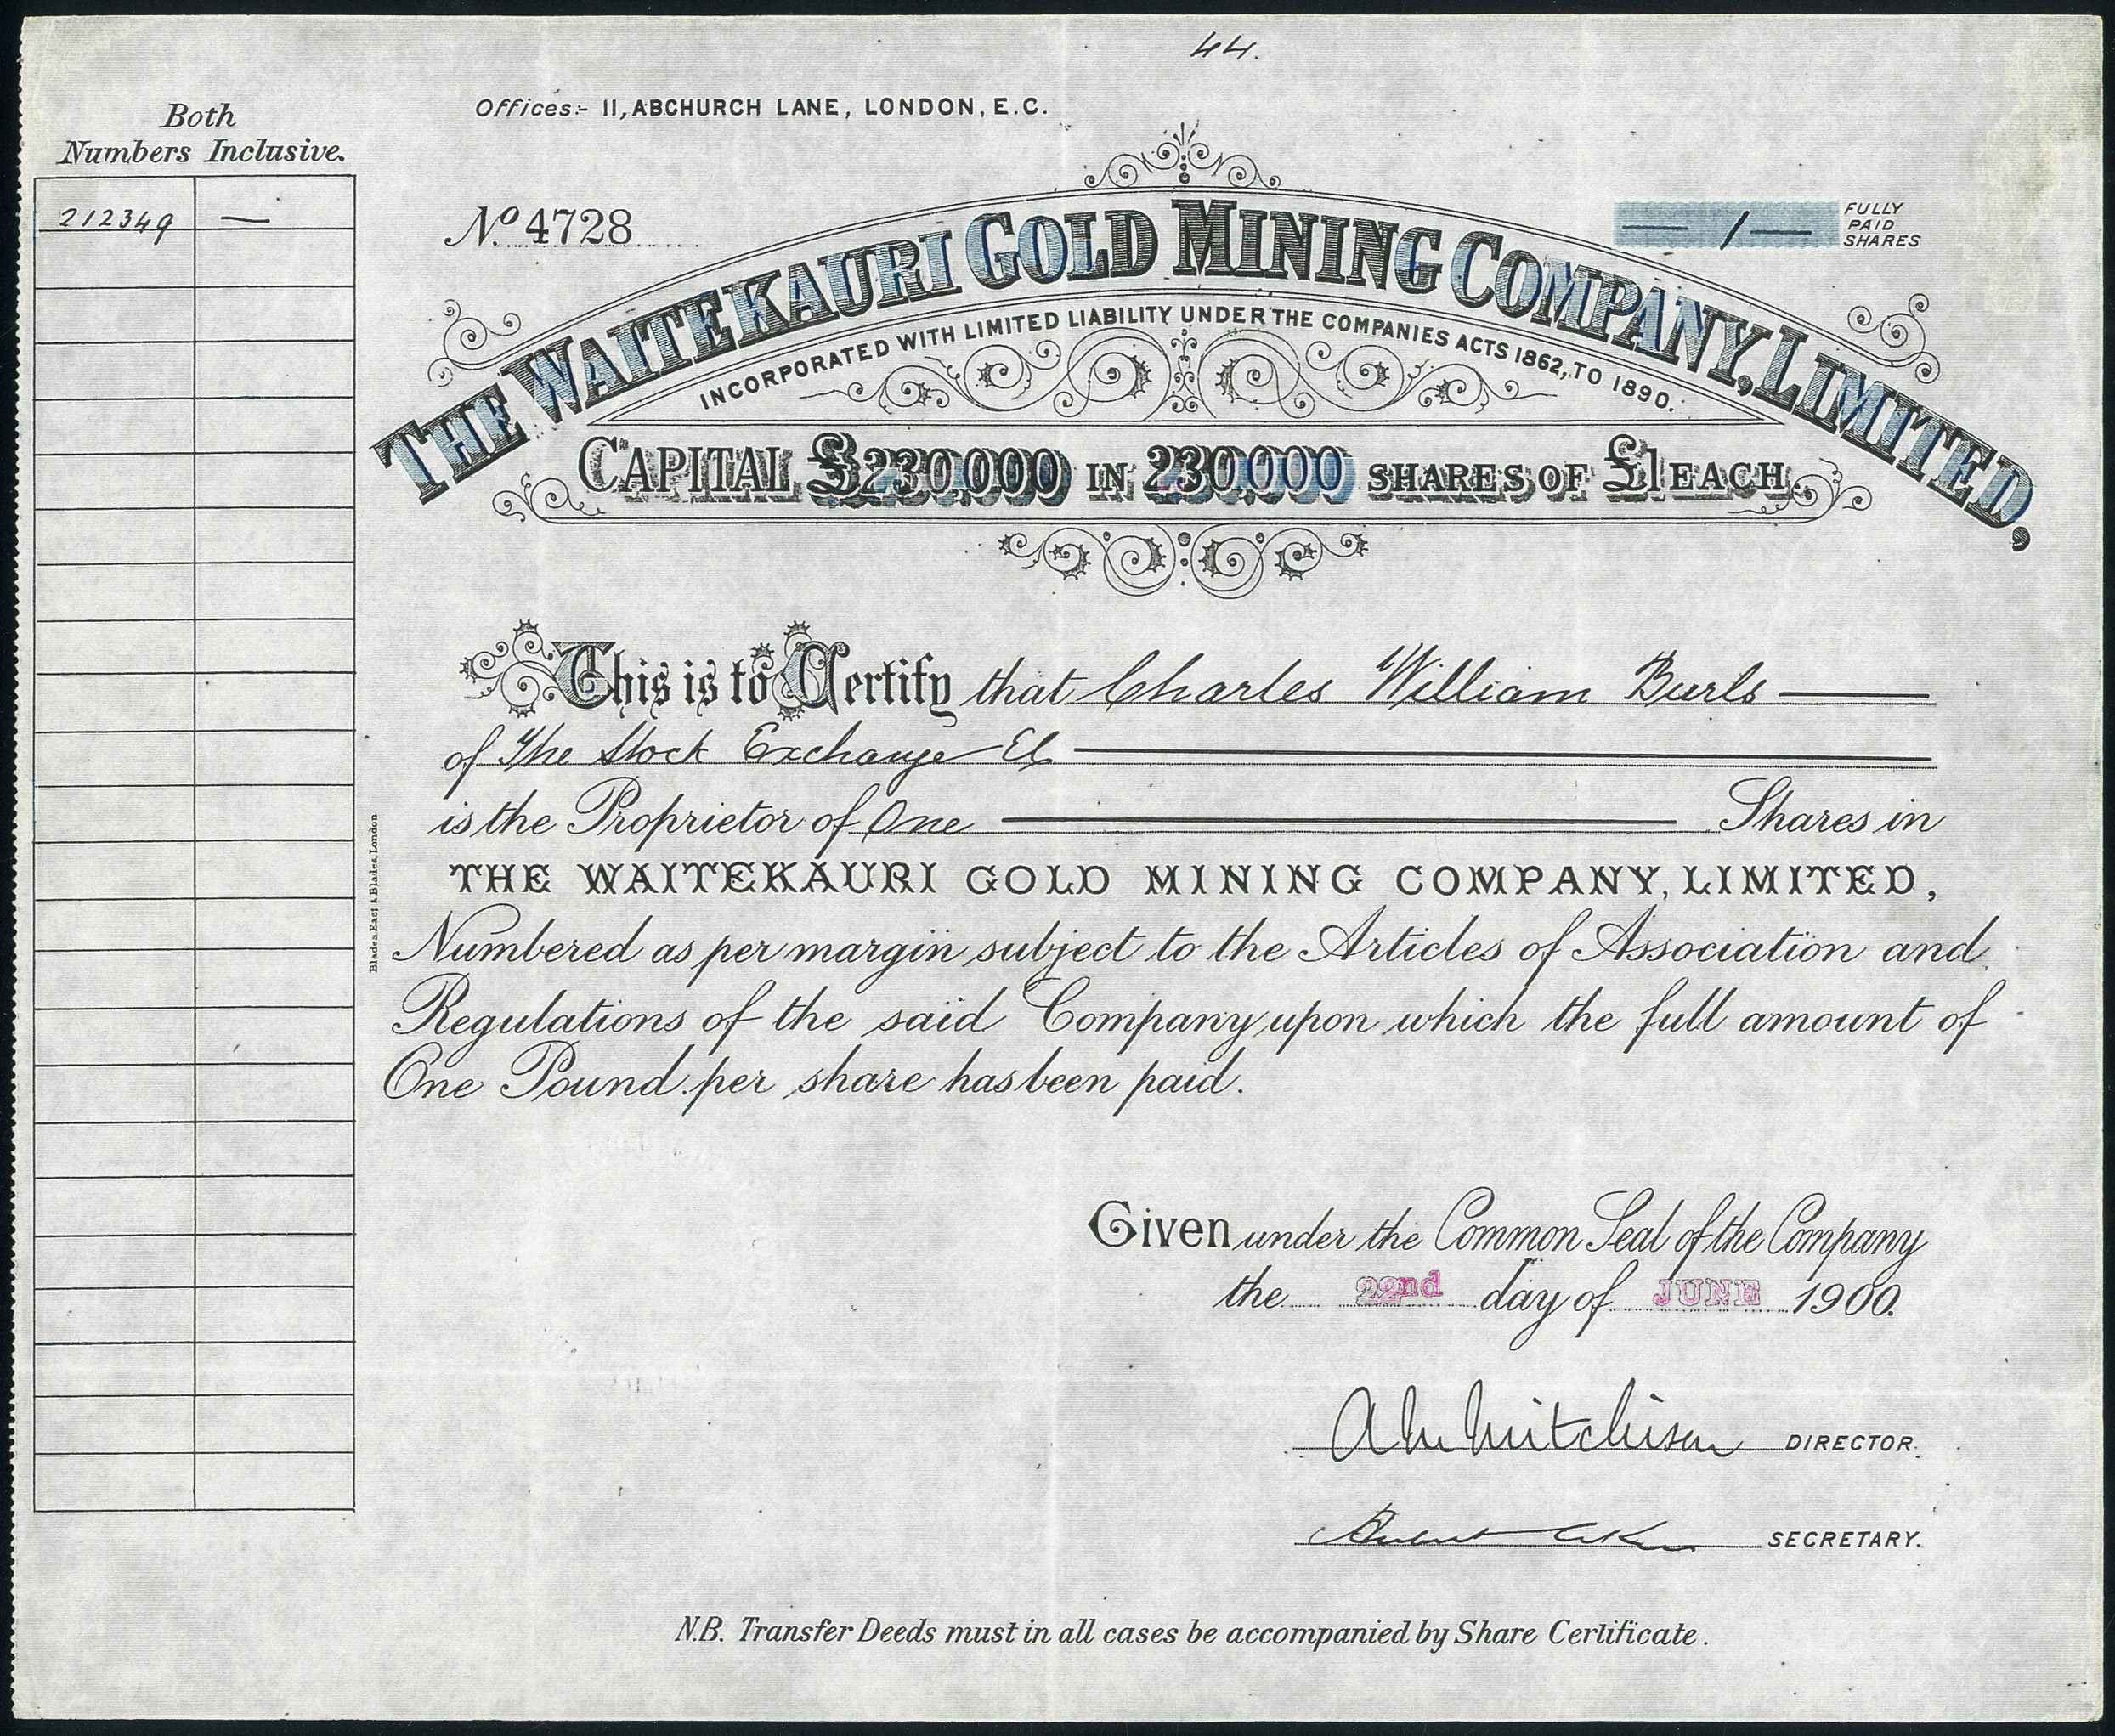 44.
Offices:- 11, ABCHURCH LANE, LONDON, E.C.
Both
Numbers Inclusive.
212349 —
No 4728
— 1 —
FULLY
PAID
SHARES
THE WAITEKAURI GOLD MINING COMPANY, LIMITED,
INCORPORATED WITH LIMITED LIABILITY UNDER THE COMPANIES ACTS 1862, TO 1890.
CAPITAL £230,000 IN 230,000 SHARES OF £1 EACH.
This is to Certify that Charles William Burls
of The Stock Exchange EC
is the Proprietor of One Shares in
THE WAITEKAURI GOLD MINING COMPANY, LIMITED,
Numbered as per margin subject to the Articles of Association and
Regulations of the said Company upon which the full amount of
One Pound per share has been paid.
Blades East & Blades, London
Given under the Common Seal of the Company
the 22nd day of JUNE 1900.
A M Mitchison DIRECTOR.
SECRETARY.
N.B. Transfer Deeds must in all cases be accompanied by Share Certificate.